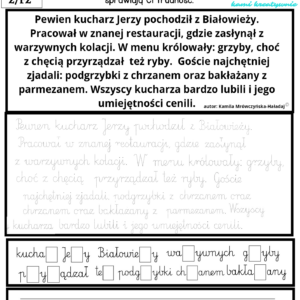 2/12
sprawiają Ci trudność.
kami kreatywnie
Pewien kucharz Jerzy pochodził z Białowieży.
Pracował w znanej restauracji, gdzie zasłynął z
warzywnych kolacji. W menu królowały: grzyby, choć
z chęcią przyrządzał też ryby. Goście najchętniej
zjadali: podgrzybki z chrzanem oraz bakłażany z
parmezanem. Wszyscy kucharza bardzo lubili i jego
umiejętności cenili.
autor: Kamila Mrówczyńska-Haładaj
Pewien kucharz Jerzy pochodził z Białowieży.
Pracował w znanej restauracji, gdzie zasłynął
z warzywnych kolacji. W menu królowały: grzyby,
choć z chęcią przyrządzał też ryby. Goście
najchętniej zjadali: podgrzybki z chrzanem
oraz bakłażany z parmezanem. Wszyscy
kucharza bardzo lubili i jego umiejętności cenili.
kucha□ Je□y Białowie□y wa□ywnych g□yby
p□y□ądzał te□ podg□ybki ch□anem bakła□any